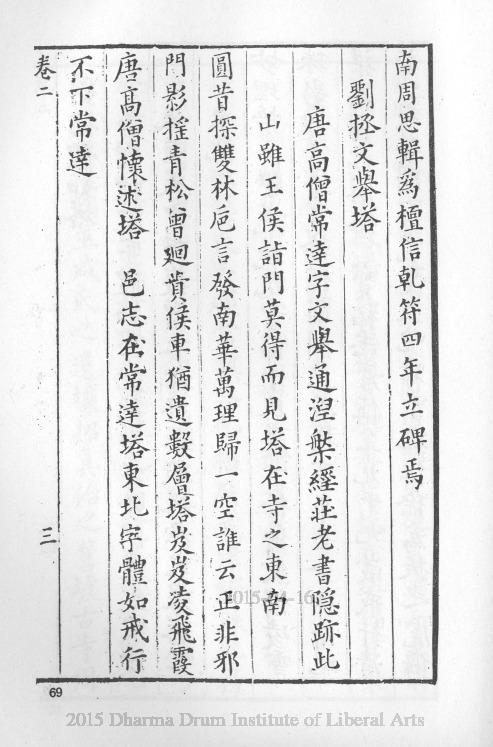 南周思輯爲檀信乹符四年立碑焉
劉拯文舉塔
唐高僧常達字文舉通涅槃經莊老書隱跡此
山雖王侯詣門莫得而見塔在寺之東南
圓昔探雙林巵言發南華萬理歸一空誰云正非邪
門影搖青松曾廻貴侯車猶遺數層塔岌岌凌飛霞
唐高僧懷述塔 邑志在常達塔東北字體如戒行
不下常達
卷二 三
69
2015-04-16
2015 Dharma Drum Institute of Liberal Arts